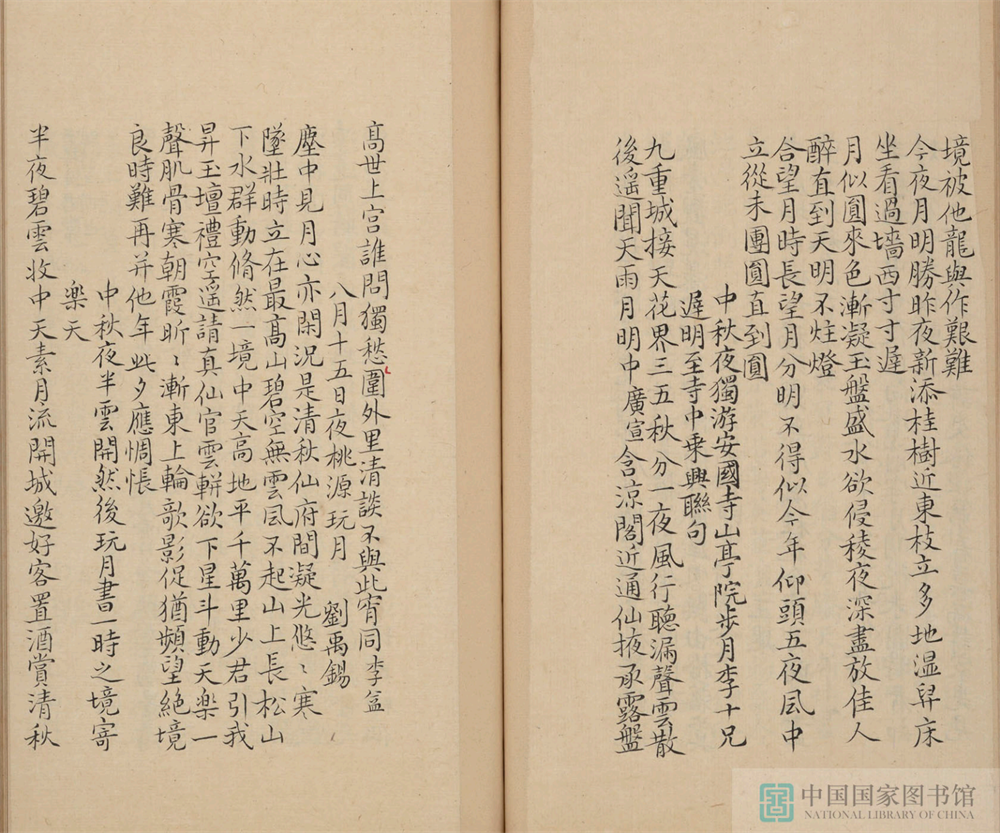 境被他龍與作艱難
今夜月明勝昨夜新添桂樹近東枝立多地温舁床
坐看過墻西寸寸遲
月似圓來色漸凝玉盤盛水欲侵稜夜深盡放佳人
醉直到天明不炷燈
合望月時長望月分明不得似今年仰頭五夜風中
立從未團圓直到圓
中秋夜獨游安國寺山亭院步月李十兄
遲明至寺中乗興聯句
九重城接天花界三五秋分一夜風行聽漏聲雲散
後遥聞天雨月明中廣宣含涼閣近通仙掖承露盤
高世上宮誰問獨愁圍外里清談不與此宵同李益
八月十五日夜桃源玩月 劉禹錫
塵中見月心亦閑況是清秋仙府間凝光悠〻寒
墜壯時立在最高山碧空無雲風不起山上長松山
下水群動脩然一境中天高地平千萬里少君引我
昇玉壇禮空遥請真仙官雲軿欲下星斗動天樂一
聲肌骨寒朝霞昕〻漸東上輪歌影促猶頻望絶境
良時難再并他年此夕應惆悵
中秋夜半雲開然後玩月書一時之境寄
樂天
半夜碧雲收中天素月流開城邀好客置酒賞清秋
中国国家图书馆
NATIONAL LIBRARY OF CHINA